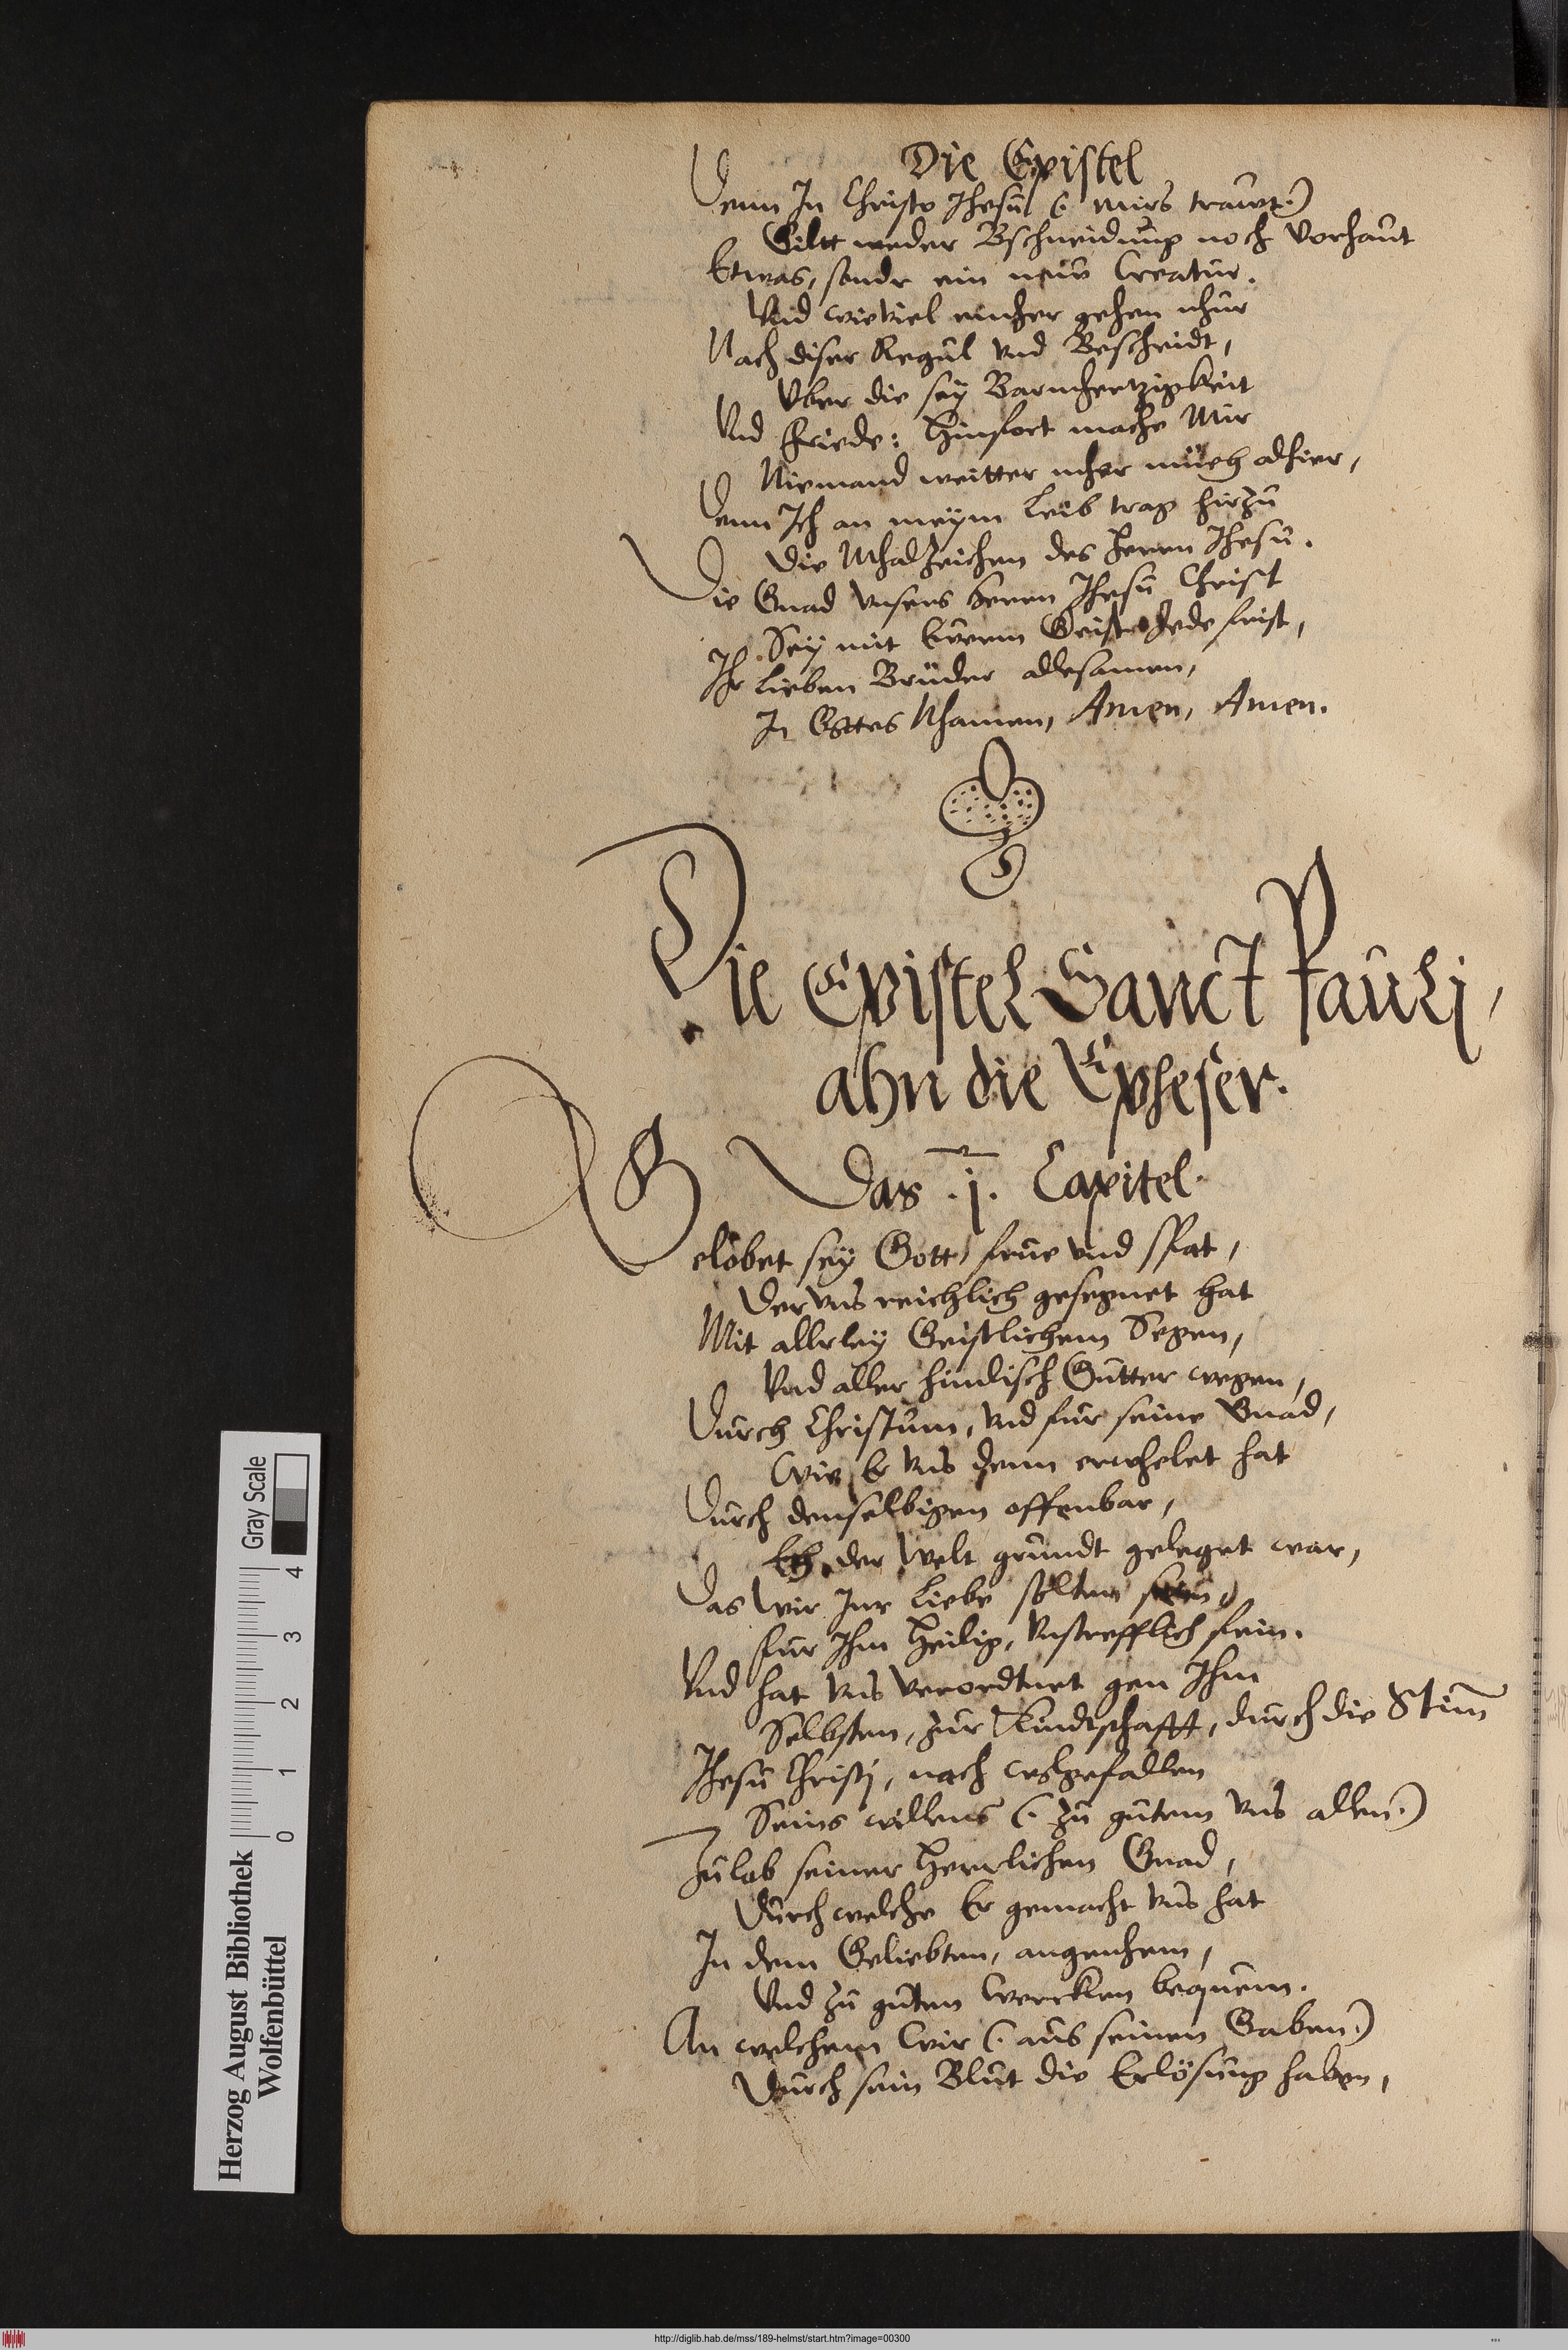 Die Epistel
Denn In Christo Jhesu (. mirs trawt.)
Giltt weder Bschneidung noch Vorhaut
Etwas, sondr ein neuw Creatur.
Vnd wieviel einher gehen nhur
Nach diser Regul vnd Bescheidt,
Vber die sey Barmhertzigkeit
Vnd Friede: Hinfort mache Mir
Niemand weitter mher müeh alhier,
Denn Ich an meym Leib trag hirzu
Die Mhalzeichen des Herrn Jhesu.
Die Gnad vnsers Herrn Jhesu Christ
Sey mit Ewrem Geist Jede frist,
Ihr lieben Brüder allesamen,
In Gottes Nhamen, Amen, Amen.
Die Epistel Sanct Pauli,
ahn die Epheser.
Das .j. Capitel.
Gelobet sey Gott, frue vnd spat,
Der vns reichlich gesegnet hat
Mit allerley Geistlichem Segen,
Vnd aller himlisch Gutter wegen,
Durch Christum, vnd fur seine Gnad,
Wie Er vns denn erwhelet hat
Durch denselbigen offenbar,
Eh der Welt grundt geleget war,
Das Wir Inn Liebe solten sein,
fur Ihm Heilig, vnstrefflich fein.
Vnd hat vns verordtnet gen Ihm
Selbsten, zur Kindtschafft, durch die Stim̃
Jhesu Christj, nach wolgefallen
Seins willens (. zu gutem vns allen.)
Zu lob seiner Herrlichen Gnad,
Durch welche Er gemacht vns hat
In dem Geliebten, angenhem,
Vnd zu guten Wercken bequem.
An welchem Wir (. aus seinen Gaben.)
Durch sein Blut die Erlösung haben,
Herzog August Bibliothek
Wolfenbüttel
0 1 2 3 4
Gray Scale
http://diglib.hab.de/mss/189-helmst/start.htm?image=00300